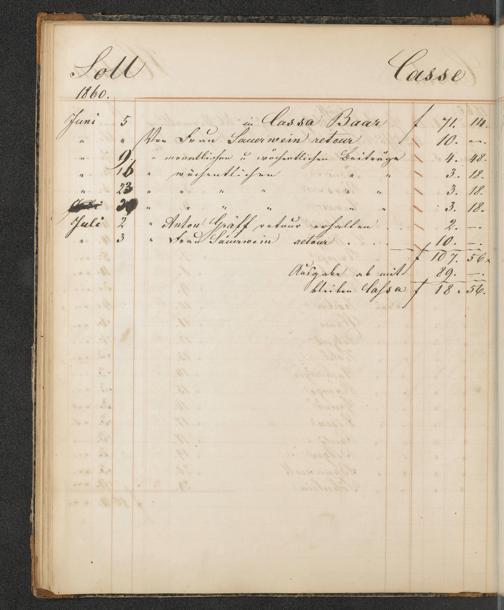 Soll Casse
1860.
Juni 5 in Cassa Baar f 71. 14.
" " Von Frau Sauerwein retour 10. —
" 9 " monatlichen u wöchentlichen Beiträge 4. 48.
" 16 " wöchentlichen " " 3. 18.
" 23 " " " " 3. 18.
" " " " " 3. 18.
Juli 2 " Anton Gräff retour erhalten 2. —
" 3 " Frau Sauerwein retour 10. —
f 107. 56.
Ausgabe ab mit 89. —
bleiben Cassa f 18. 56.